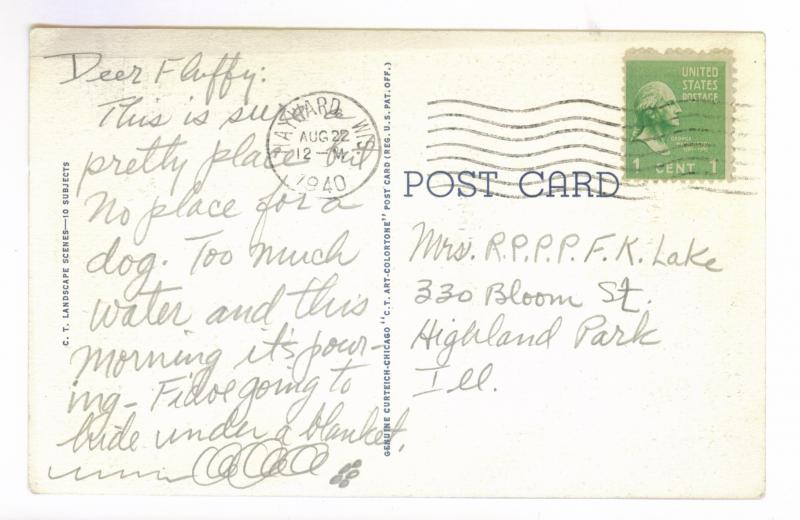 Deer Fluffy:
This is sure
pretty place but
no place for a
dog. Too much
water and this
morning it's pour-
ing - Fidoe going to
hide under a blanket.
C. T. LANDSCAPE SCENES—10 SUBJECTS
GENUINE CURTEICH-CHICAGO "C. T. ART-COLORTONE" POST CARD (REG. U. S. PAT. OFF.)
HAYWARD WIS
AUG 22
12 - M
1940
UNITED
STATES
POSTAGE
GEORGE
1 CENT 1
POST CARD
Mrs. R.P.P.P. F. K. Lake
330 Bloom St.
Highland Park
Ill.